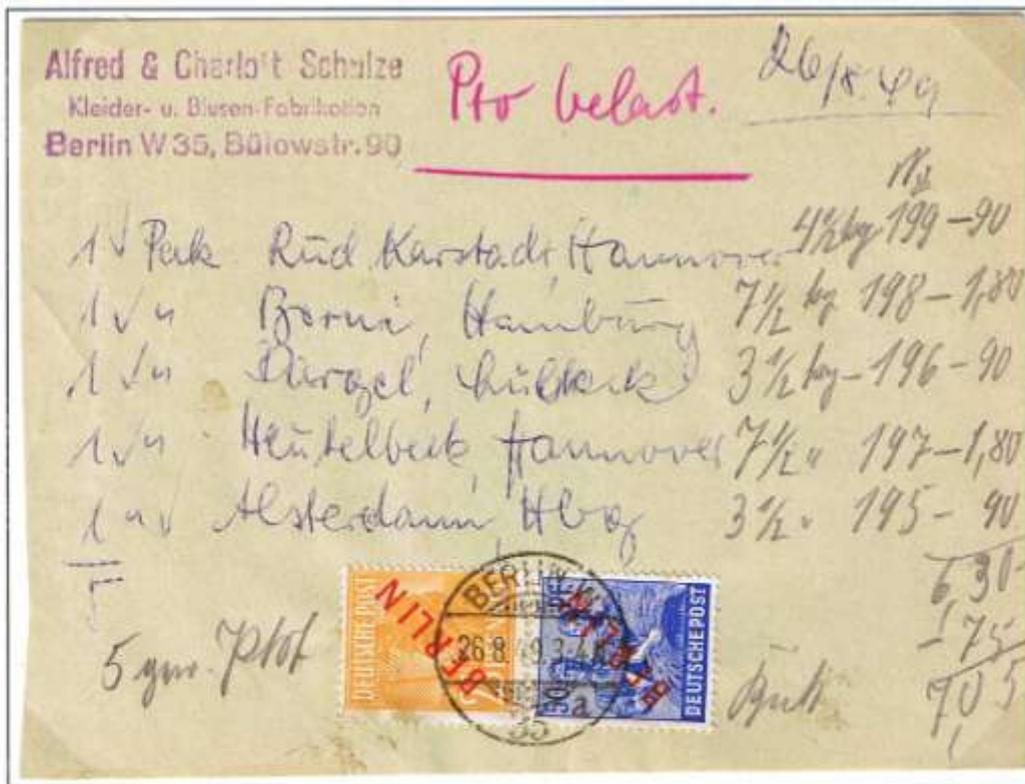 Alfred & Charlott Schulze
Kleider- u. Blusen-Fabrikation
Berlin W 35, Bülowstr. 90
Pto belast.
26/8. 49
1 Pak Rud. Karstadt, Hannover 4 1/2 kg 199 - 90
1 " Berni, Hamburg 7 1/2 kg 198 - 1,80
1 " 3 1/2 kg - 196 - 90
1 " Heutelbeck, Hannover 7 1/2 " 197 - 1,80
1 " Alsterdamm, Hbg 3 1/2 " 195 - 90
5
6,30
- 75
7,05
5 gew.
DEUTSCHE POST
BERLIN
BERLIN W
26.8.49.3-4
a
35
50
BERLIN
DEUTSCHE POST